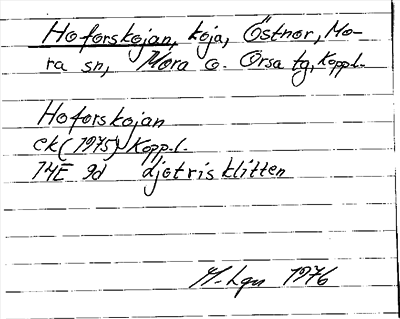 Hoforskojan, koja, Östnor, Mo-
ra sn, Mora o. Orsa tg, Koppl.
Hoforskojan
ek (1975) Koppl.
14E 9d djotrisklitten
M-lgn 1976